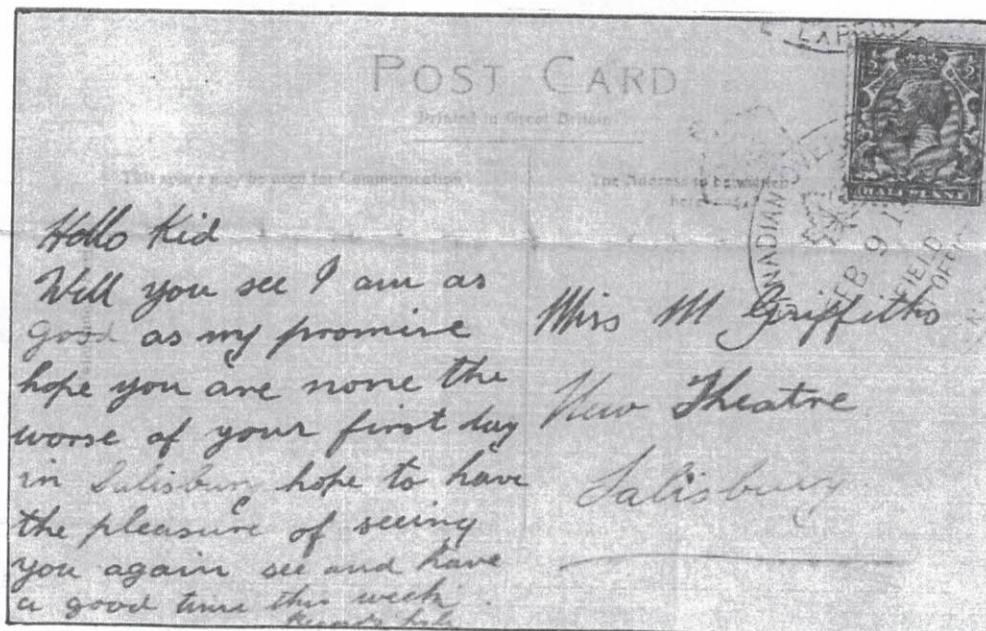 POST CARD
Printed in Great Britain
This space may be used for Communication
The Address to be written
Hello Kid
Well you see I am as
good as my promise
hope you are none the
worse of your first day
in Salisbury hope to have
the pleasure of seeing
you again see and have
a good time this week.
Miss M Griffiths
New Theatre
Salisbury
FEB 9
FIELD
HALFPENNY